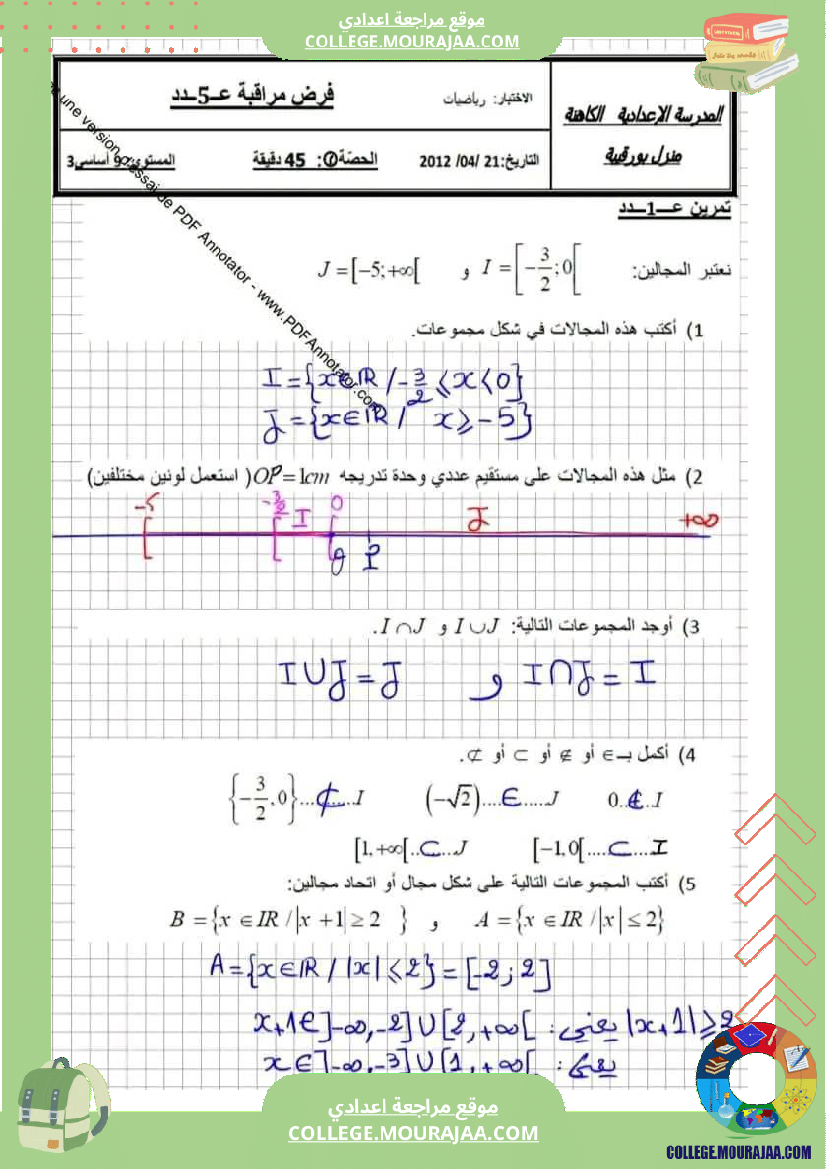 موقع مراجعة اعدادي
COLLEGE.MOURAJAA.COM
المدرسة الإعدادية الكاهنة
منزل بورقيبة
الاختبار: رياضيات
فرض مراقبة عـ5ـدد
التاريخ: 21 /04/ 2012
الحصّة: 45 دقيقة
المستوى: 9 أساسي3
une version d'essai de PDF Annotator - www.PDFAnnotator.com
تمرين عـ1ـدد
نعتبر المجالين: I = [-3/2 ; 0[ و J = [-5; +∞[
1) أكتب هذه المجالات في شكل مجموعات.
I = {x ∈ IR / -3/2 ⩽ x < 0}
J = {x ∈ IR / x ⩾ -5}
2) مثل هذه المجالات على مستقيم عددي وحدة تدريجه OP = 1cm (استعمل لونين مختلفين)
-5 -3/2 I 0 J +∞
3) أوجد المجموعات التالية: I∪J و I∩J.
I∩J = I و I∪J = J
4) أكمل بـ ∈ أو ∉ أو ⊂ أو ⊄.
0..∉..I (-√2)...∈.....J {-3/2, 0}...⊄...I
[-1,0[....⊂...I [1,+∞[..⊂...J
5) أكتب المجموعات التالية على شكل مجال أو اتحاد مجالين:
A = {x ∈ IR / |x| ≤ 2} و B = {x ∈ IR / |x + 1| ≥ 2 }
A = {x ∈ IR / |x| ⩽ 2} = [-2 ; 2]
|x+1| ⩾ 2 يعني: x+1 ∈ ]-∞,-2] ∪ [2,+∞[
يعني: x ∈ ]-∞,-3] ∪ [1,+∞[
موقع مراجعة اعدادي
COLLEGE.MOURAJAA.COM
COLLEGE.MOURAJAA.COM